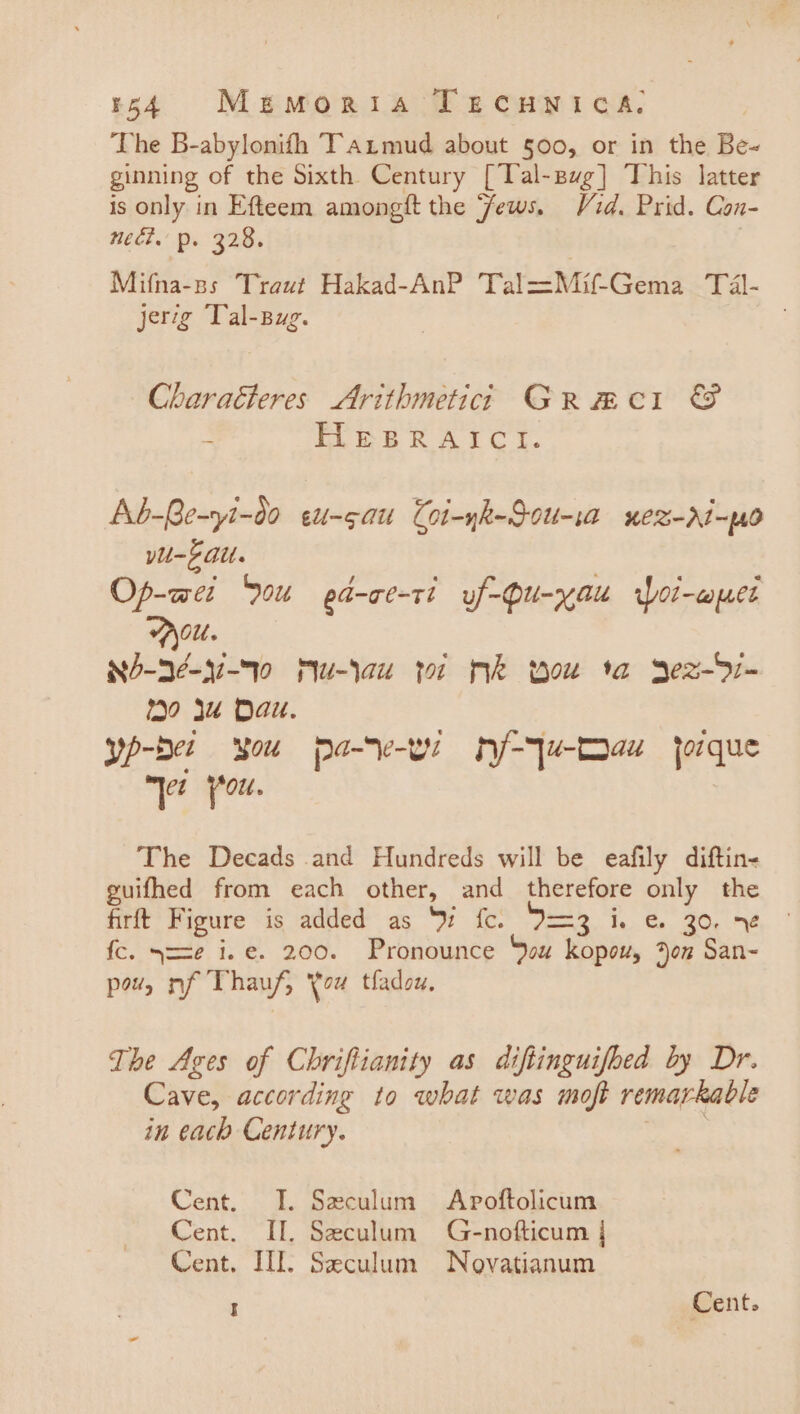 154 MEMORIA TECHNICA.
The B-abyloniſh TALmud about 500, or in the Be-
ginning of the Sixth Century [Tal-Bug] This latter
is only in Eſteem amongſt the Jews. Vid. Prid. Con-
nect. p. 328.
Miſna-BS Traut Hakad-AnP Tal=Miſ-Gema Tál-
jerig Tal-Bug.
Characteres Arithmetici GRÆCI &
HEBRAICI.
Ab-βe-γi-δo εu-ςau ζoi-ηk-ϑou-ιa κez-λi-μo
νu-ξau.
Op-πei ϟou ρa-σe-τi υf-φu-χau ψoi-ωμei
ϡou.
אb-בé-גi-דo הu-וau זoi חk טou יa כez-לi-
מo נu סau.
עp-פei צou קa-רe-שi תf-ךu-םau ןoique
ףei ץou.
The Decads and Hundreds will be eaſily diſtin-
guiſhed from each other, and therefore only the
firſt Figure is added as לi ſc. ל=3 i. e. 30. רe
ſc. ר=e i. e. 200. Pronounce ϟou kopou, ϡou San-
pou, תf Thauf, ץou tſadou.
The Ages of Chriſtianity as diſtinguiſhed by Dr.
Cave, according to what was moſt remarkable
in each Century.
Cent. I. Sæculum Apoſtolicum
Cent. II. Sæculum G-noſticum |
Cent. III. Sæculum Novatianum
I Cent.